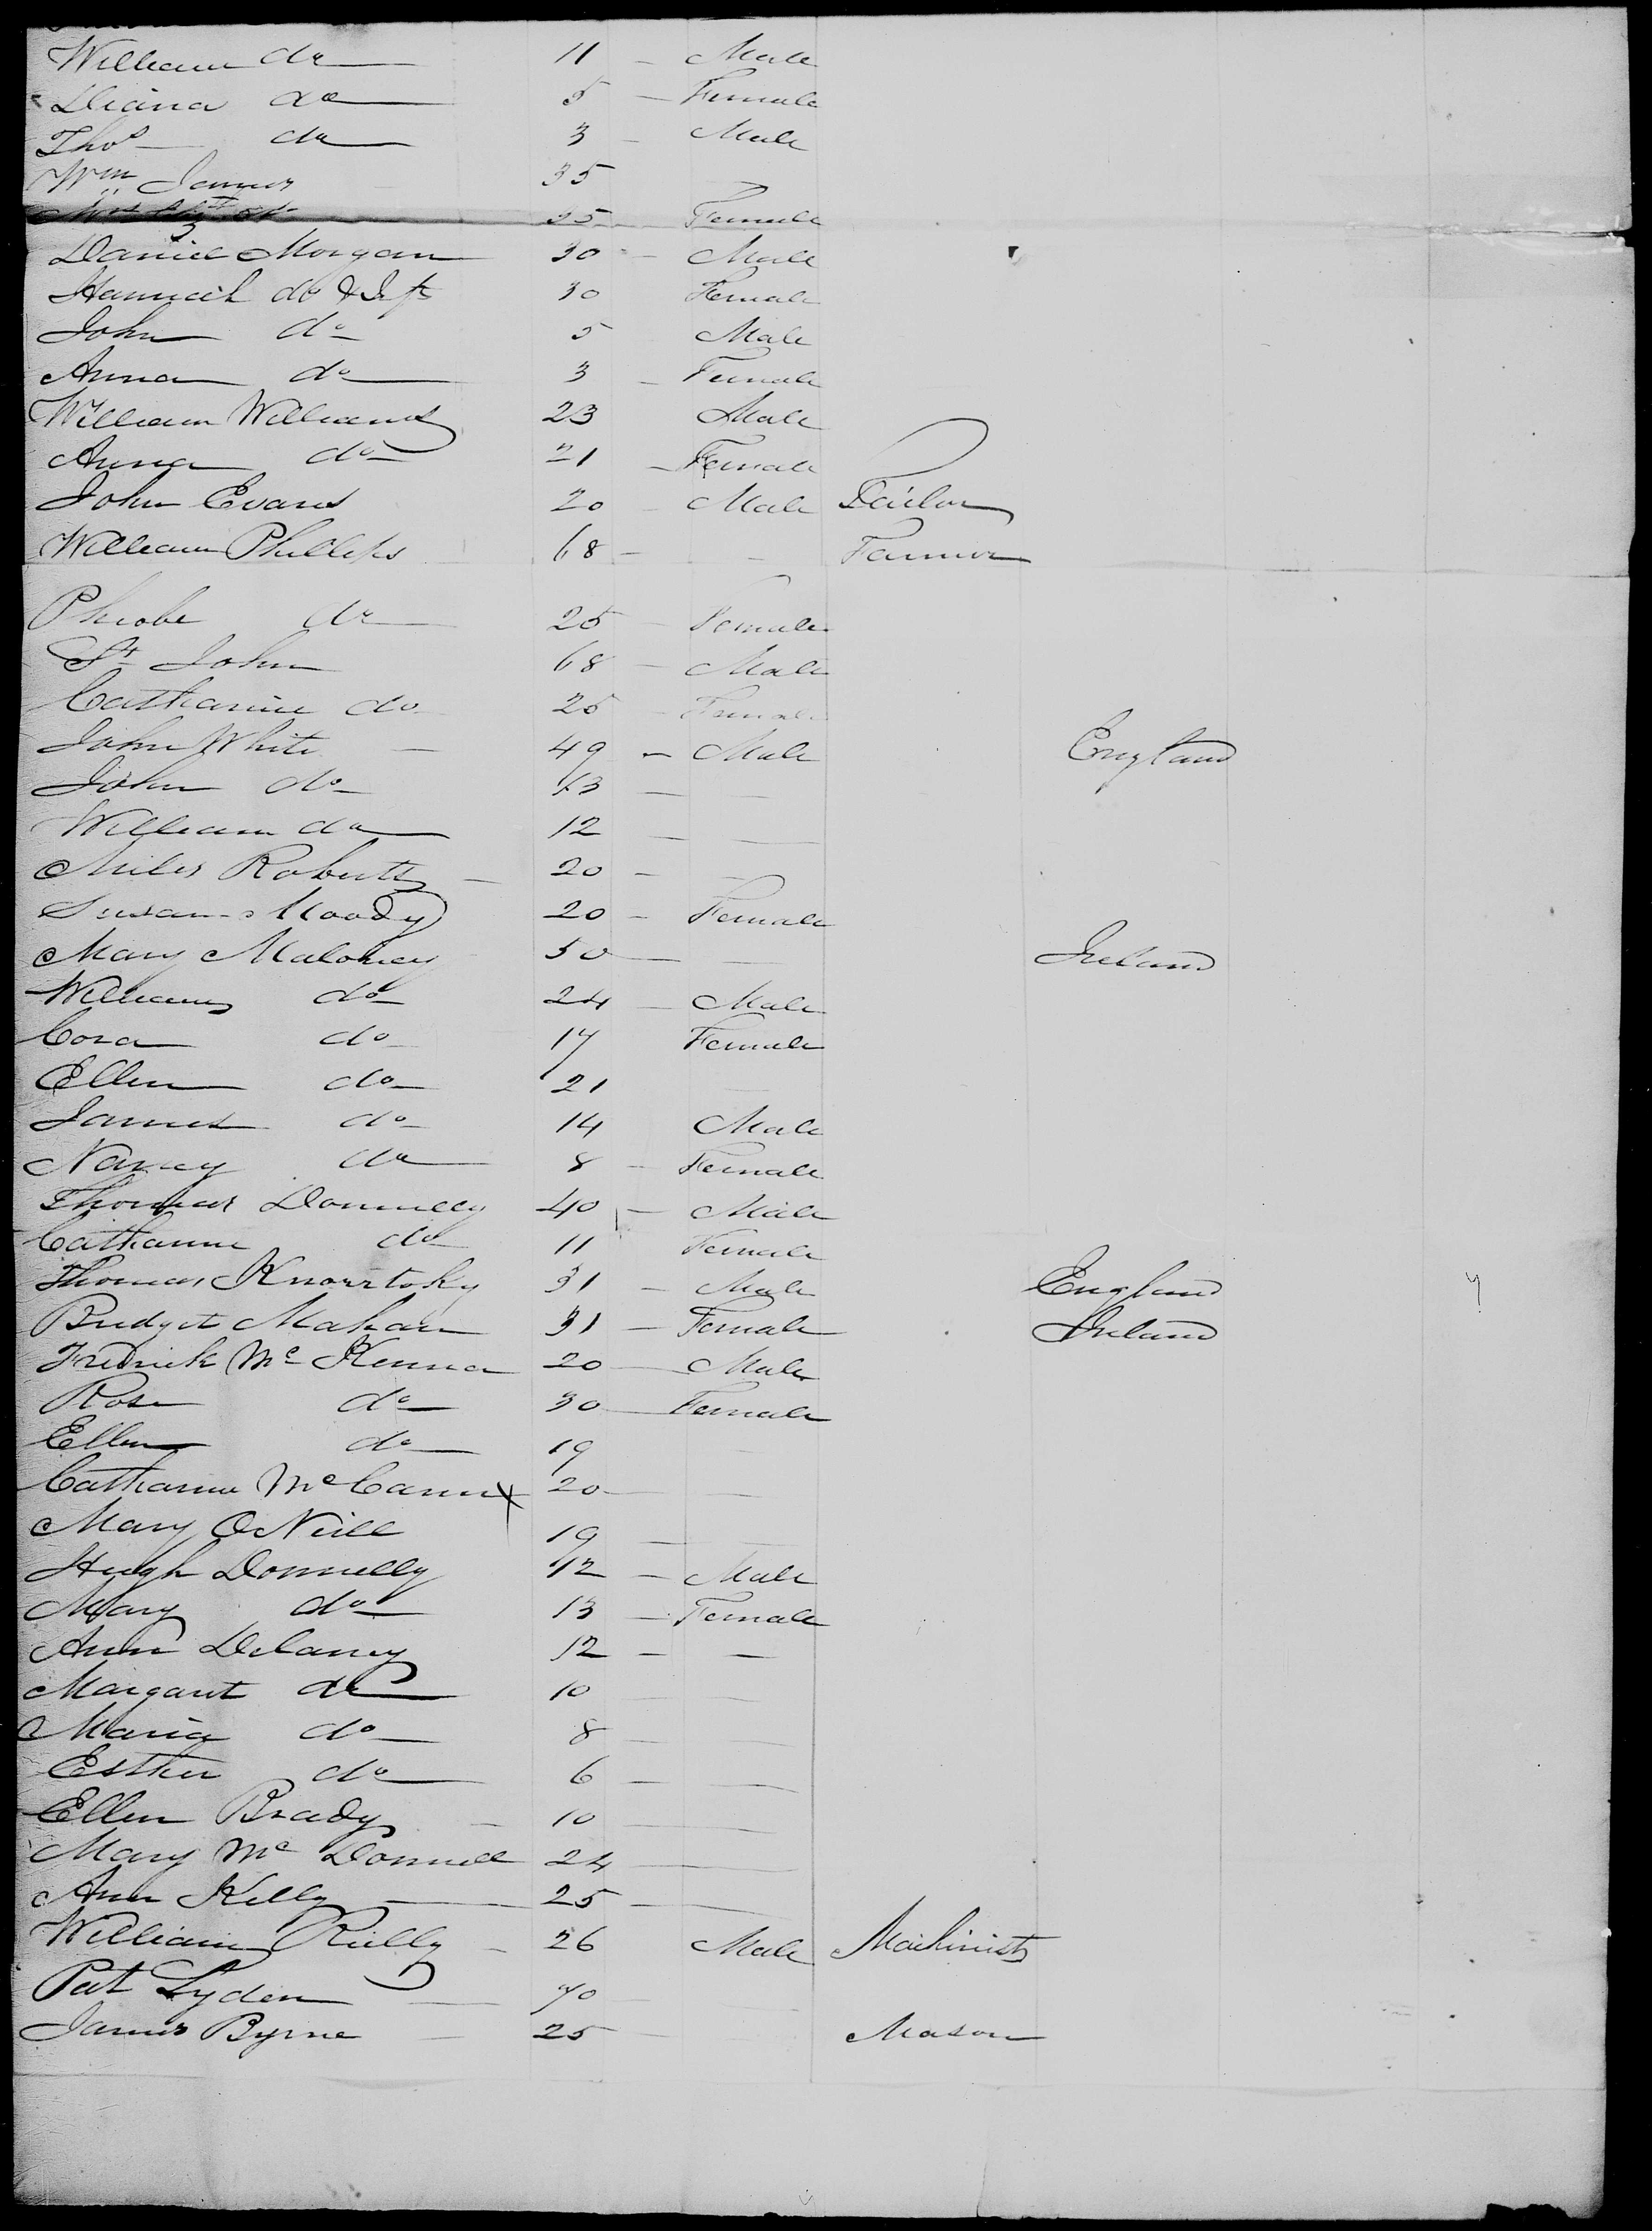 William do 11 - Male
Diana do 5 - Female
Thos do 3 - Male
Wm James 35 -
35 - Female
Daniel Morgan 30 - Male
Hannah do & Inft 30 Female
John do 5 Male
Anna do 3 - Female
William Williams 23 Male
Anna do 21 - Female
John Evans 20 - Male Tailor
William Phillips 68 - - Farmer
Pheobe do 25 - Female
St John 68 - Male
Catharine do 25 - Female
John White - 49 - Male England
John do 13 - -
William do 12 - -
Miles Roberts - 20 - -
Susan Moody 20 - Female
Mary Maloney 50 - - Ireland
William do 24 - Male
Cora do 17 Female
Ellen do 21 -
James do 14 Male
Nancy do 8 - Female
Thomas Donnelly 40 - Male
Catharine do 11 Female
Thomas 31 - Male England
Bridget Mahan 31 - Female Ireland
Fredrick Mc Kenna 20 - Male
Rose do 30 - Female
Ellen do 19 -
Catharine Mc Cann x 20 - -
Mary O Neill 19 - -
Hugh Donnelly 12 - Male
Mary do 13 - Female
Ann Delaney 12 - -
Margaret do 10 - -
Maria do 8 - -
Esther do 6 - -
Ellen Brady - 10 - -
Mary Mc Donnell 24 - -
Ann Kelly - 25 - -
William Reilly - 26 Male Machinist
Pat Lyden - 70 - -
James Byrne - 25 - Mason